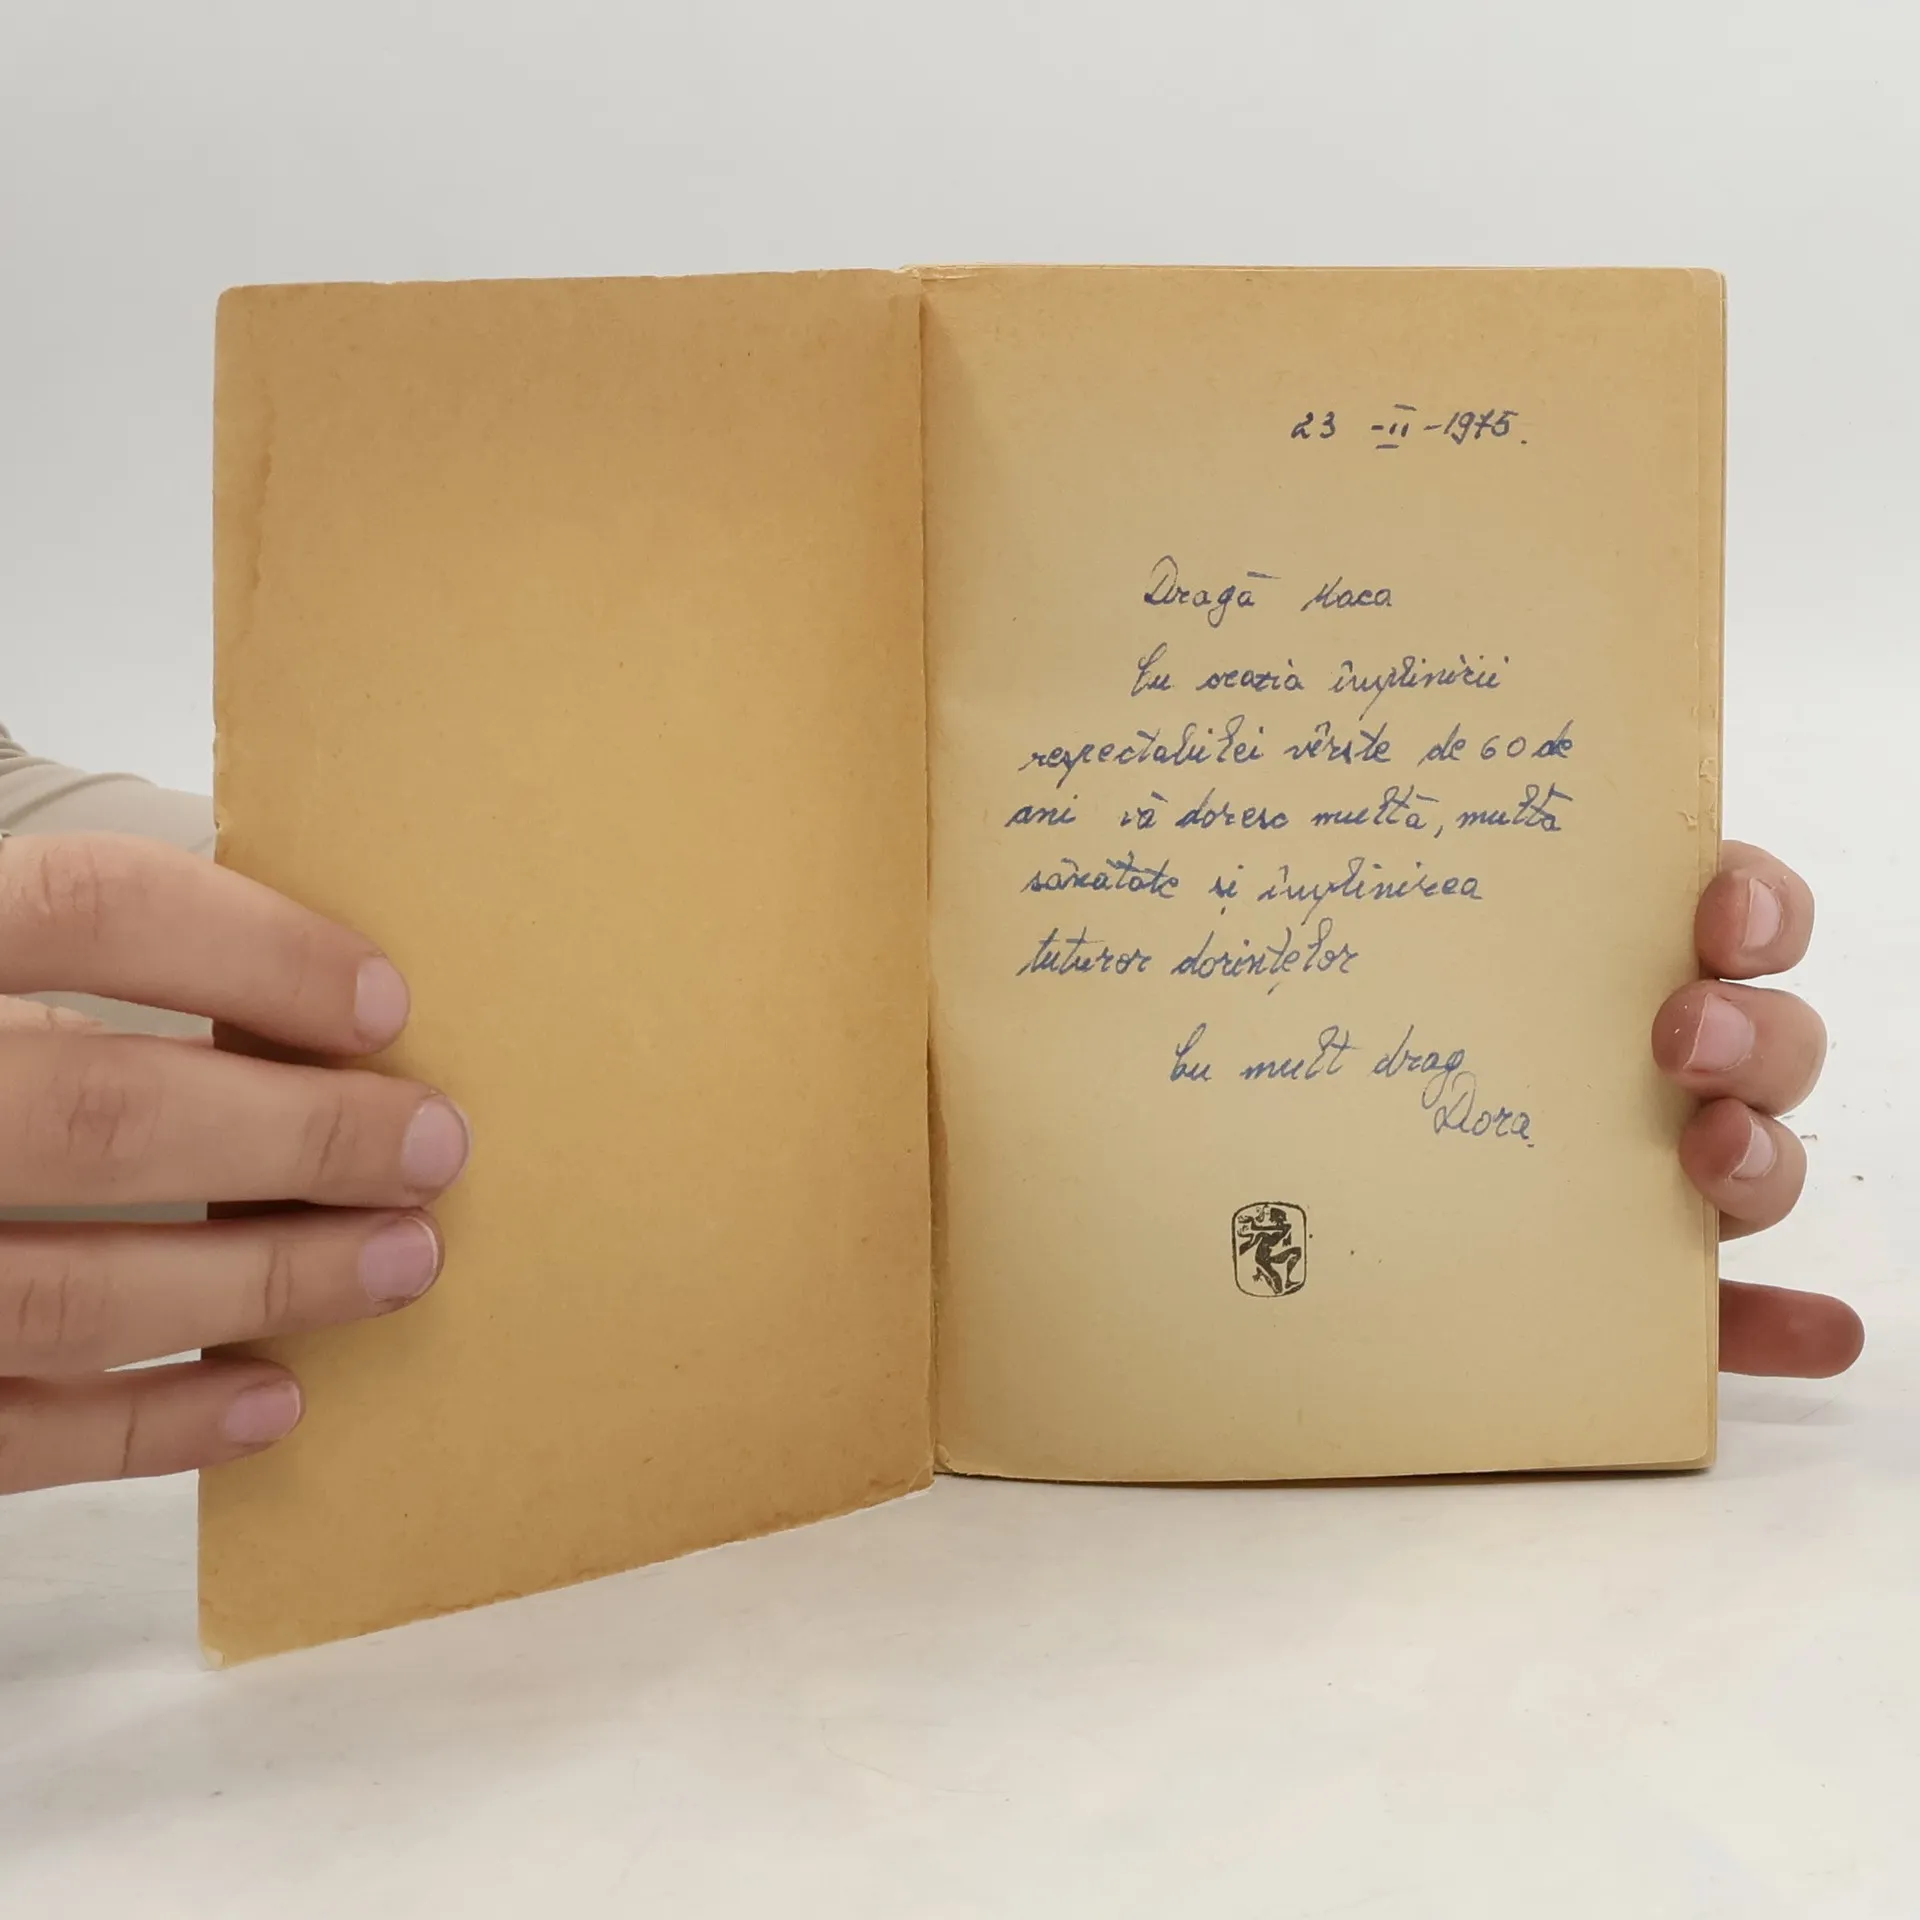 23 -II-1975.
Dragă Maca
Cu ocazia împlinirii
respectabilei vîrste de 60 de
ani vă doresc multă, multă
sănătate și împlinirea
tuturor dorințelor
Cu mult drag
Dora.